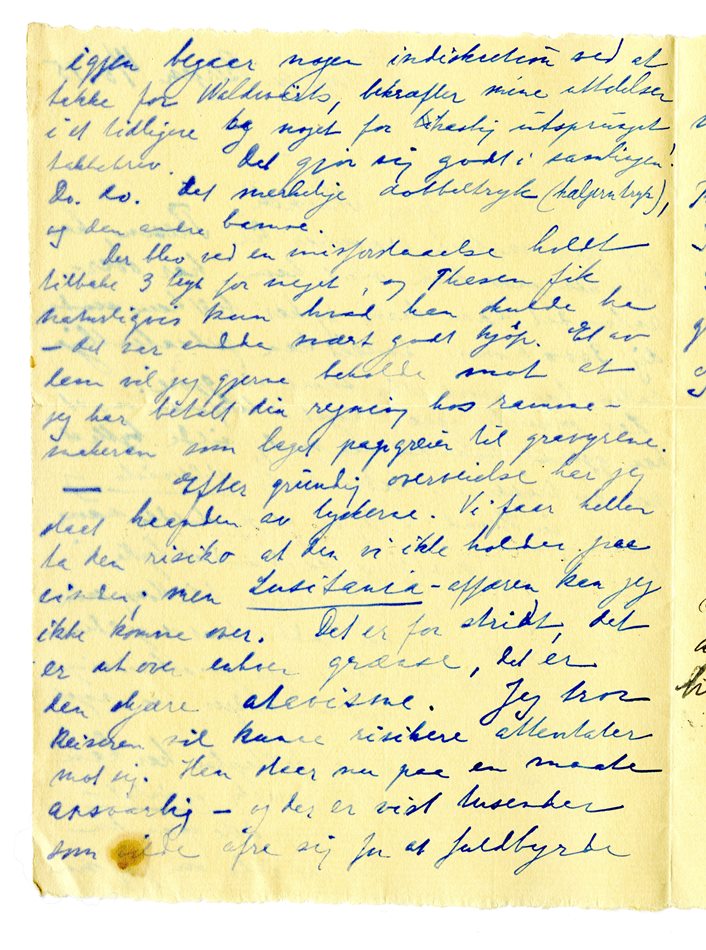 igjen begaar nogen indiskretion ved at
takke for Waldwärts, bekræfter mine uttalelser
i et tidligere og noget for hastig utsprunget
takkebrev. Det gjør sig godt i samlingen!
Do. do. det merkelige dobbeltryk
og den andre
Der blev ved en misforstaaelse holdt
tilbake 3 for meget, og Thesen fik
naturligvis kun hvad han skulde ha
– det var endda svært godt kjøp. Et av
dem vil jeg gjerne beholde mot at
jeg har betalt din regning hos ramme-
makeren som laget papgreier til gravyrene.
— Efter grundig overveielse har jeg
slaat haanden av tyskerne. Vi faar heller
ta den risiko at den vi ikke holder paa
vinder; men Lusitania-affæren kan jeg
ikke komme over. Det er for stridt, det
er ut over enhver grænse, det er
den skjære atavisme. Jeg tror
Keiseren vil kunne risikere attentater
mot sig. Han staar nu paa en maate
ansvarlig – og der er vist tusender
som vilde ofre sig for at fuldbyrde